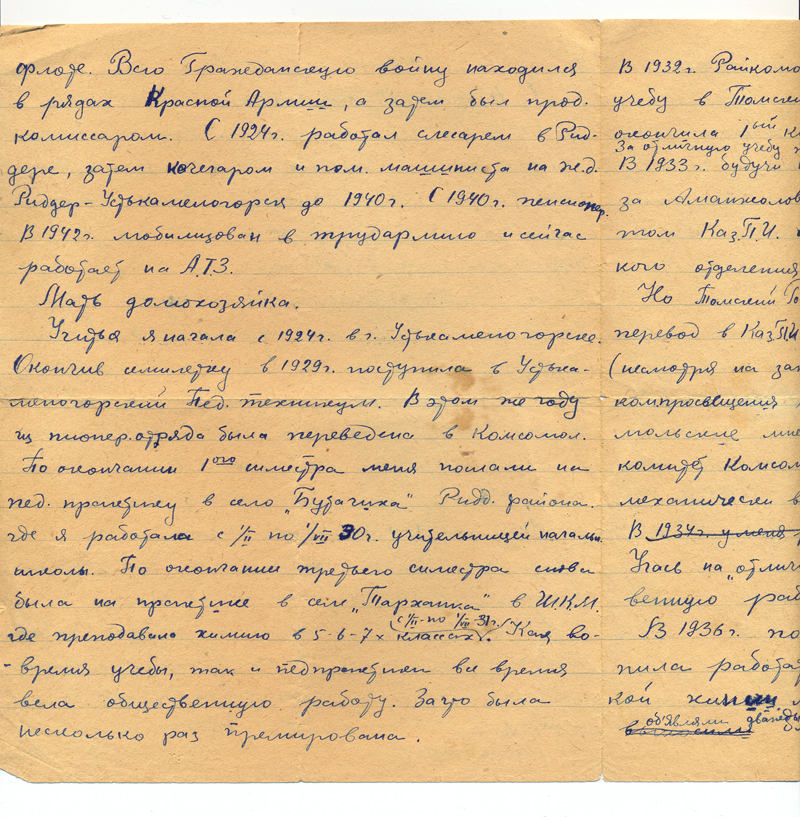 флоте. Всю Гражданскую войну находился
в рядах Красной Армии, а затем был прод.
комиссаром. С 1924г. работал слесарем в Рид-
дере, затем кочегаром и пом. машиниста на ж.д.
Риддер-Устькаменогорск до 1940г. С 1940г. пенсионер.
В 1942г. мобилизован в трудармию и сейчас
работает на А.Т.З.
Мать домохозяйка.
Учиться я начала с 1924г. в г. Устькаменогорске.
Окончив семилетку в 1929г. поступила в Устька-
меногорский Пед. техникум. В этом же году
из пионер.отряда была переведена в Комсомол.
По окончании 1ого симестра меня послали на
пед. практику в село "Бутачиха" Ридд. района.
где я работала с 1/II по 1/VII 30г. учительницей начальн.
школы. По окончании третьего симестра снова
была на практике в селе "Тарханка" в Ш.К.М.
(с 1/II по 1/VII-31г.)
где преподавала химию в 5-6-7х классах. Как во-
-время учебы, так и педпрактики все время
вела общественную работу. За что была
несколько раз премирована.
В 1932г. Райкомо
учебу в Томски
окончила 1ый к
За отличную учебу
В 1933г. будучи
за Аманжолов
том Каз.П.И.
кого отделения
Но Томский Го
перевод в КазПИ
(несмотря на за
компросвещения
мольские
комитет Комсом
механически в
В 1934г. у меня
Учась на "отлич
венную раб
В 1936г. по
пила работа
кой химии
об'являли дважды
выносили